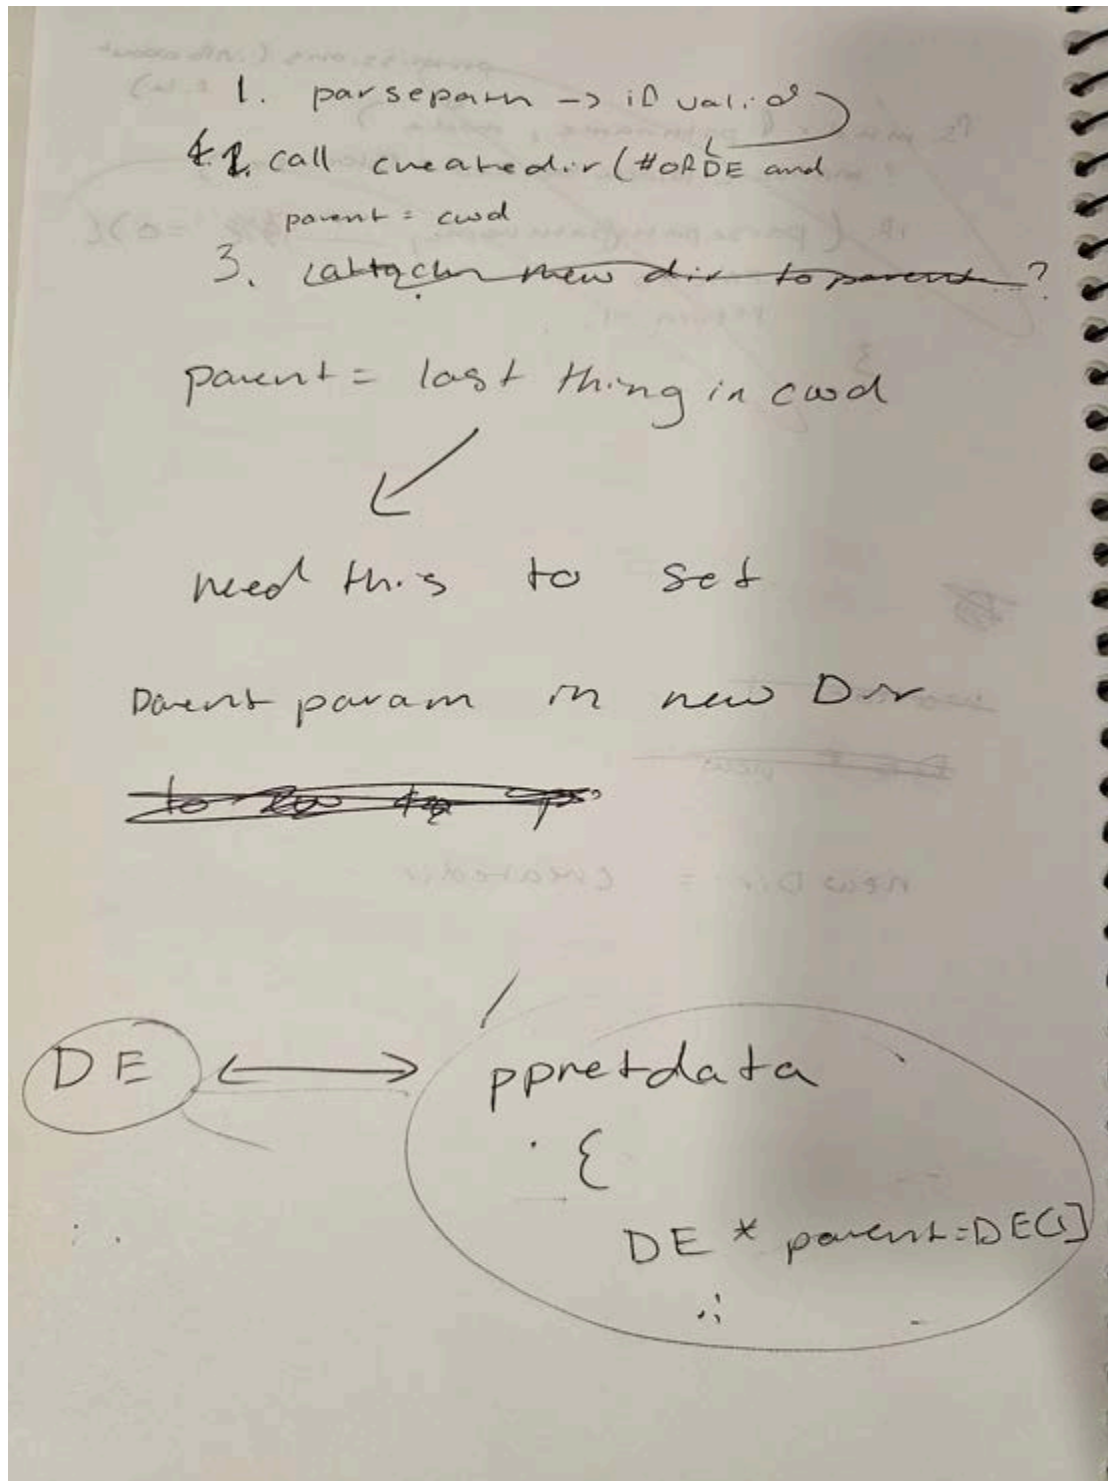 1. parsepath -> if valid
2. call createdir (#ofDE and
parent = cwd
3. (attach new dir to parent ?
parent = last thing in cwd
need this to set
parent param in new Dir
DE
ppretdata
{
DE * parent=DE[1]
new Dir = createdir